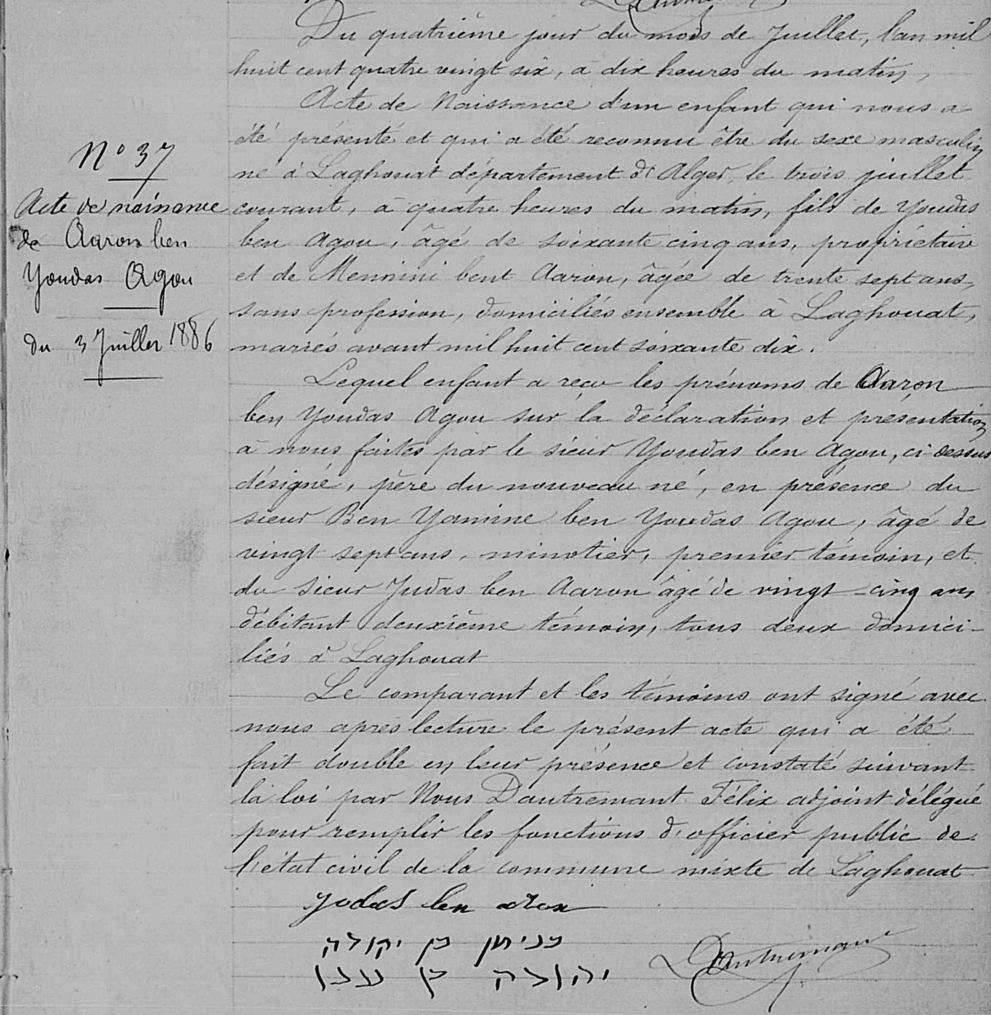 Nº 37
Acte de naissance
de Aaron ben
Youdas Agou
du 3 Juillet 1886
Du quatrième jour du mois de Juillet, l'an mil
huit cent quatre vingt six, à dix heures du matin,
Acte de Naissance d'un enfant qui nous a
été présenté et qui a été reconnu être du sexe masculin
né à Laghouat département d'Alger, le trois juillet
courant, à quatre heures du matin, fils de Youdas
ben Agou, âgé de soixante cinq ans, propriétaire
et de Mennini bent Aaron, âgée de trente sept ans,
sans profession, domiciliés ensemble à Laghouat,
mariés avant mil huit cent soixante dix.
Lequel enfant a reçu les prénoms de Aaron
ben Youdas Agou sur la déclaration et présentation
à nous faites par le sieur Youdas ben Agou, ci-dessus
désigné, père du nouveau né, en présence du
sieur Ben Yamine ben Youdas Agou, âgé de
vingt sept ans, minotier, premier témoin, et
du sieur Judas ben Aaron âgé de vingt-cinq ans
débitant deuxième témoin, tous deux domici-
liés à Laghouat
Le comparant et les témoins ont signé avec
nous après lecture le présent acte qui a été
fait double en leur présence et constaté suivant
la loi par Nous Dautremant Félix adjoint délégué
pour remplir les fonctions d'officier public de
l'état civil de la commune mixte de Laghouat
Judas ben aron
בן יהודה
יהודה בן
Dautremant